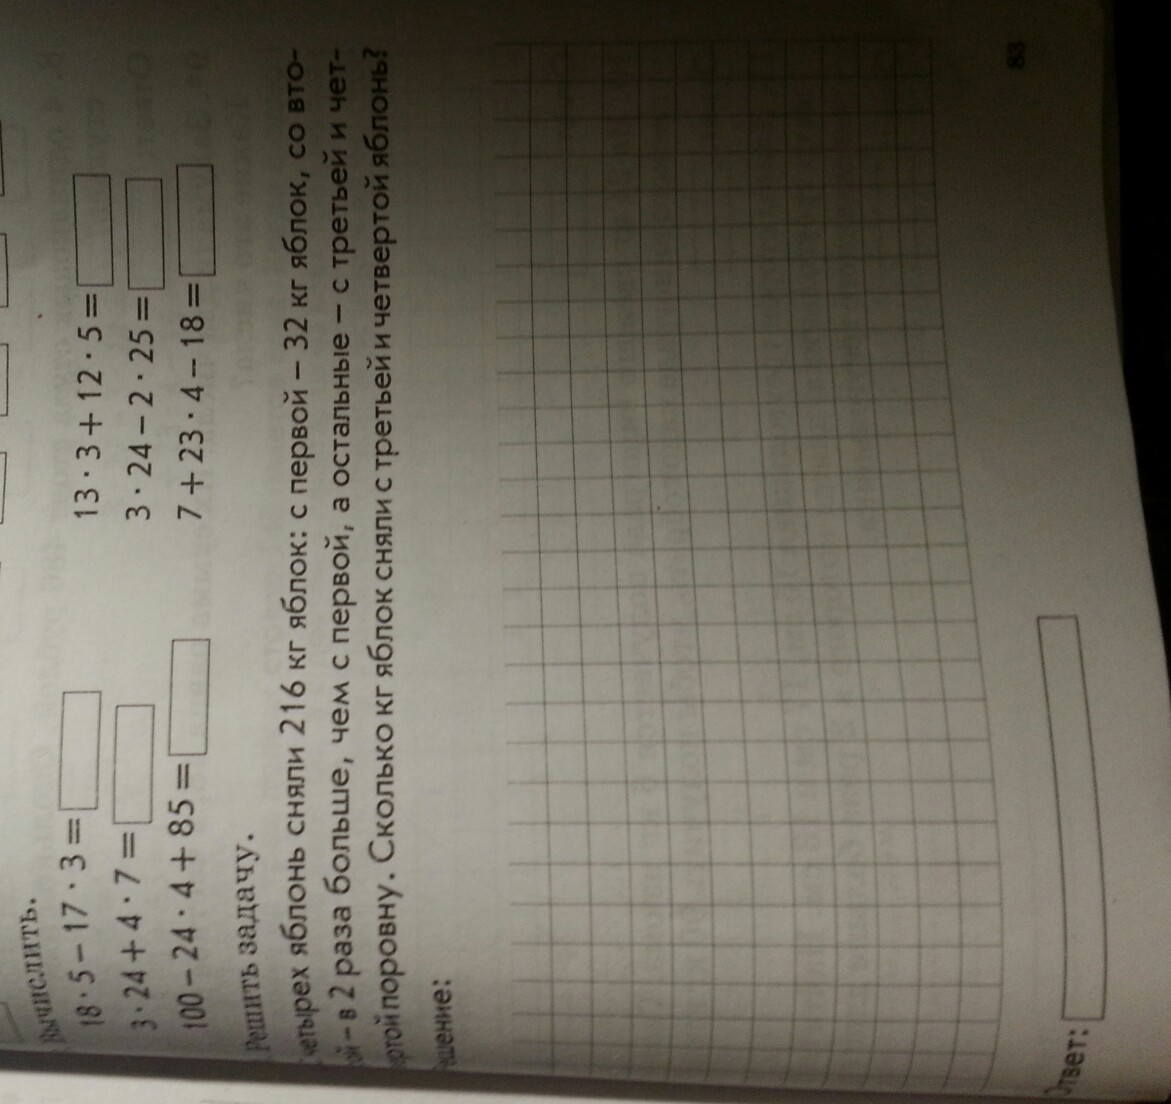 Вычислить.
18 · 5 – 17 · 3 =
13 · 3 + 12 · 5 =
3 · 24 + 4 · 7 =
3 · 24 – 2 · 25 =
100 – 24 · 4 + 85 =
7 + 23 · 4 – 18 =
Решить задачу.
четырех яблонь сняли 216 кг яблок: с первой – 32 кг яблок, со вто-
ой – в 2 раза больше, чем с первой, а остальные – с третьей и чет-
ертой поровну. Сколько кг яблок сняли с третьей и четвертой яблонь?
ешение:
Ответ:
83